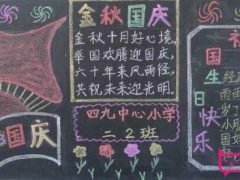 国庆
金秋国庆
金秋十月好心境,
举国欢腾迎国庆,
六十年来风雨径,
共祝未来迎光明。
四九中心小学
二2班
国生日快乐